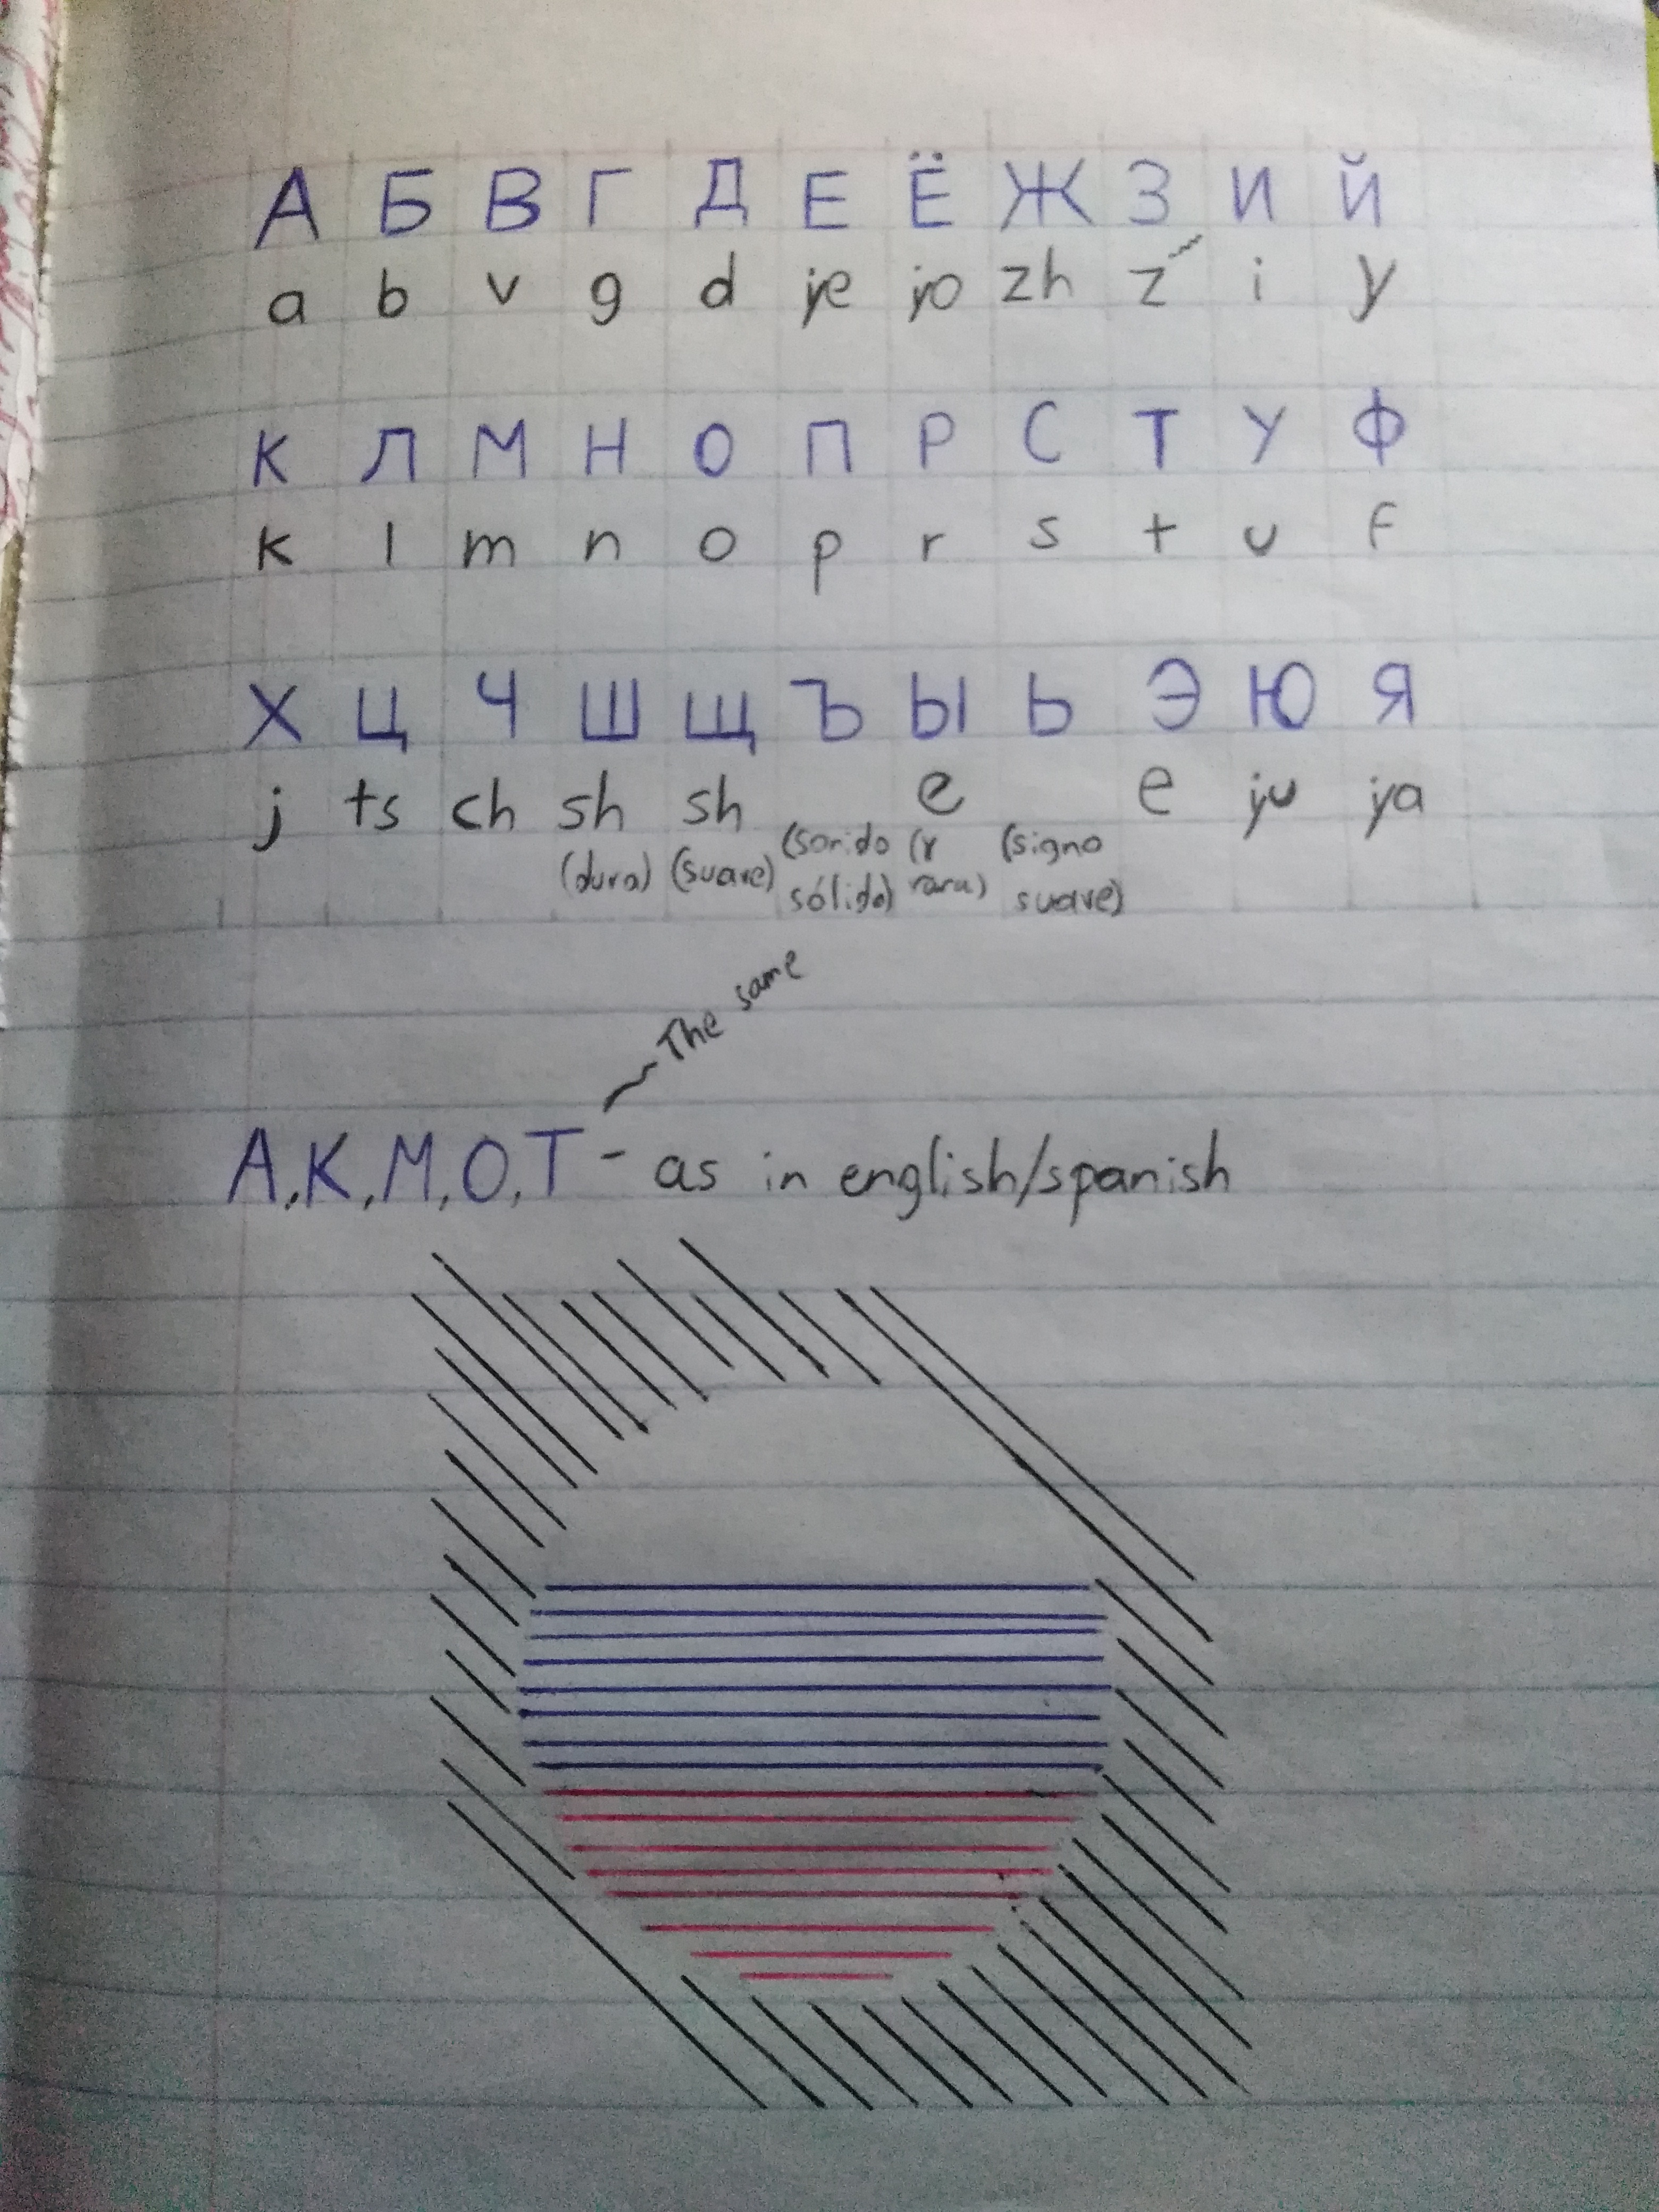 А Б В Г Д Е Ё Ж З И Й
a b v g d je jo zh z i y
К Л М Н О П Р С Т У Ф
k l m n o p r s t u f
Х Ц Ч Ш Щ Ъ Ы Ь Э Ю Я
j ts ch sh sh e e ju ja
(dura) (suave) (sonido sólido) (signo suave)
The same
A, K, M, O, T - as in english/spanish